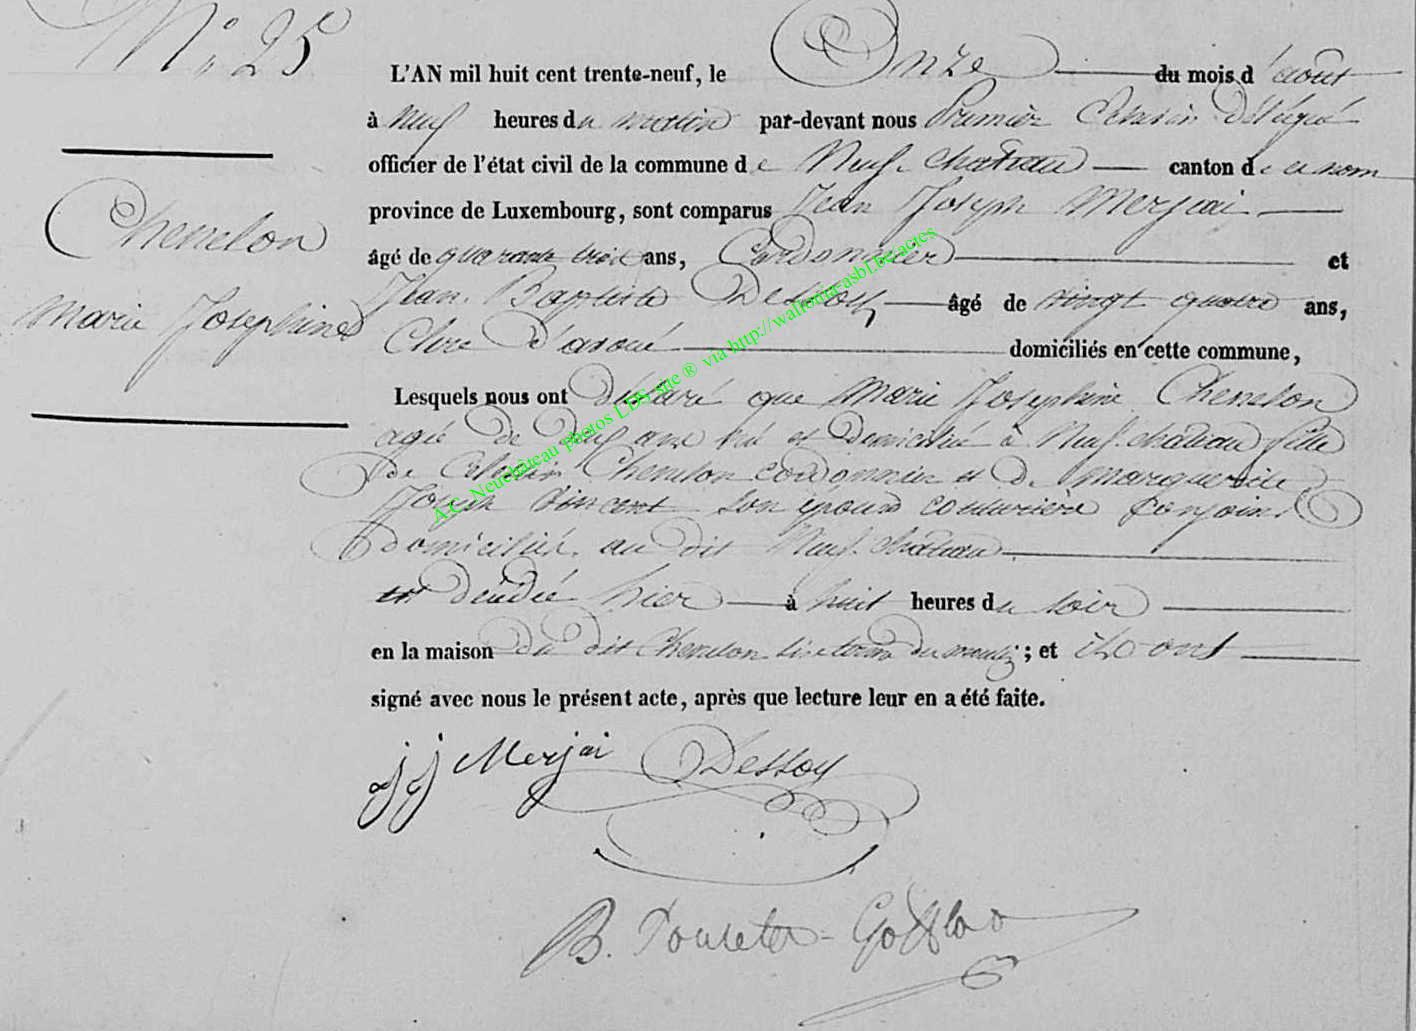 N° 25
L'AN mil huit cent trente-neuf, le Onze du mois d'août
à neuf heures du matin par-devant nous Premier Echevin Délégué
officier de l'état civil de la commune de Neuf-chateau canton de ce nom
province de Luxembourg, sont comparus Jean Joseph Merjai
âgé de quarante trois ans, Cordonnier et
Jean Baptiste Dessoy âgé de vingt quatre ans,
Clerc d'avoué domiciliés en cette commune,
Lesquels nous ont déclaré que Marie Joséphine Chenelon
agée de deux ans né et Domicilié à Neuf-chateau fille
de Chenelon cordonnier et de Marguerite
Joseph Vincent son épouse couturière conjoints
domiciliés au dit Neuf-chateau
est décédée hier à huit heures du soir
en la maison du dit Chenelon ; et ils ont
signé avec nous le présent acte, après que lecture leur en a été faite.
Chenelon
Marie Josephine
jj Merjai Dessoy
B.
A.C. Neufchâteau photos LDS site ® via http://wallonia-asbl.be/actes